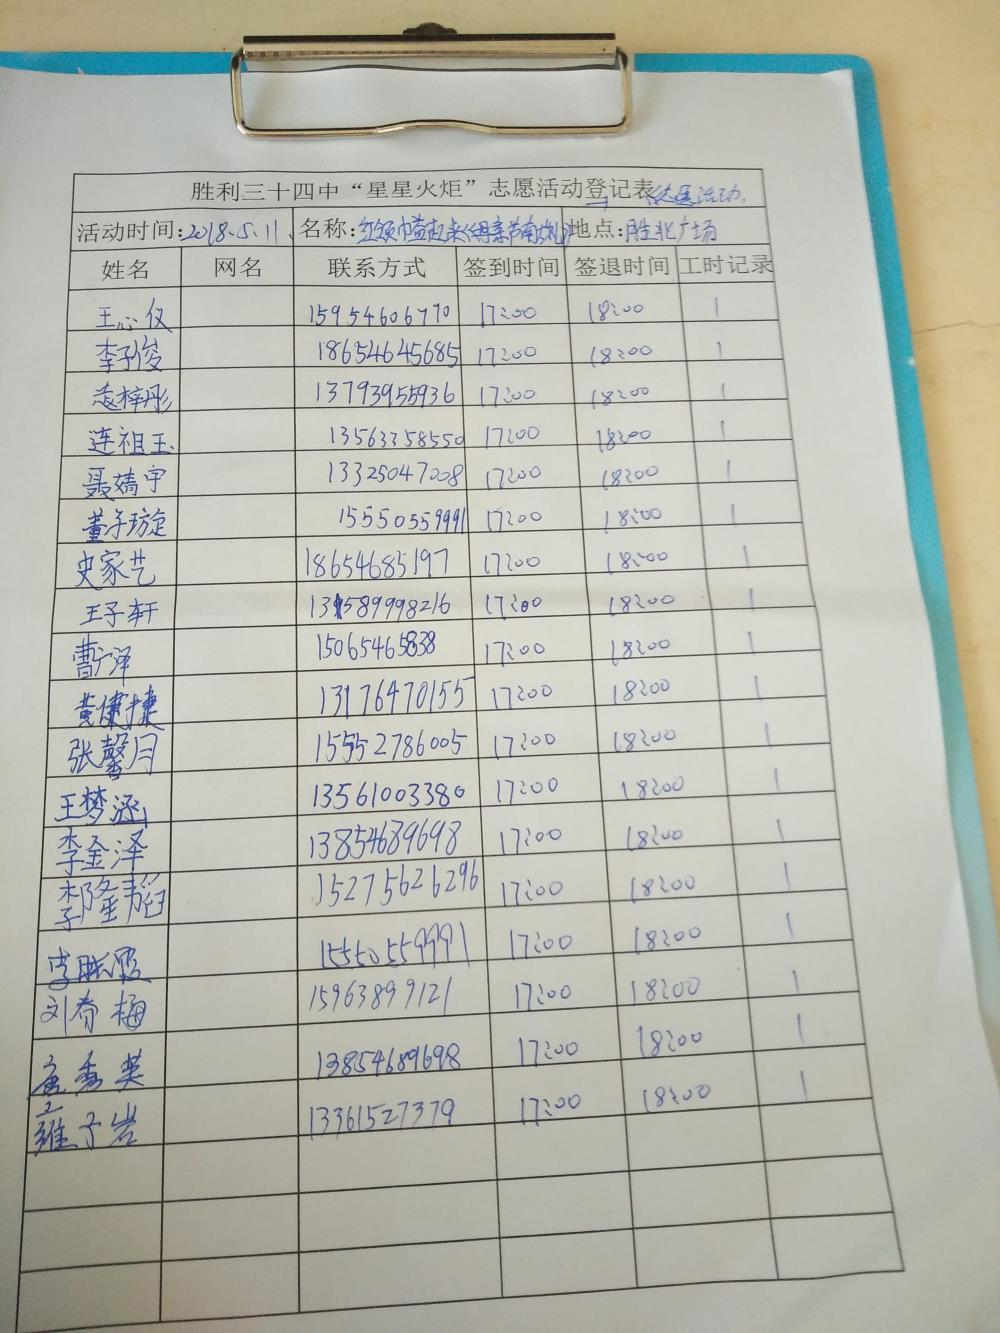 胜利三十四中“星星火炬”志愿活动登记表 活动
活动时间:2018.5.11、 名称:红领巾益起来 地点:胜北广场
姓名 网名 联系方式 签到时间 签退时间 工时记录
王心仪 15954606770 17:00 18:00 1
李子俊 18654645685 17:00 18:00 1
梓彤 13793955936 17:00 18:00 1
连祖玉 13563358550 17:00 18:00 1
聂婧宇 13325047008 17:00 18:00 1
董子璇 15550559991 17:00 18:00 1
史家艺 18654685197 17:00 18:00 1
王子轩 17:00 18:00 1
曹广泽 15065465838 17:00 18:00 1
黄健捷 13176470155 17:00 18:00 1
张馨月 15552786005 17:00 18:00 1
王梦涵 13561003380 17:00 18:00 1
李金泽 13854689698 17:00 18:00 1
李隆韬 15275626296 17:00 18:00 1
15550559991 17:00 18:00 1
刘春梅 15963899121 17:00 18:00 1
秀英 13854689698 17:00 18:00 1
子岩 13361527379 17:00 18:00 1